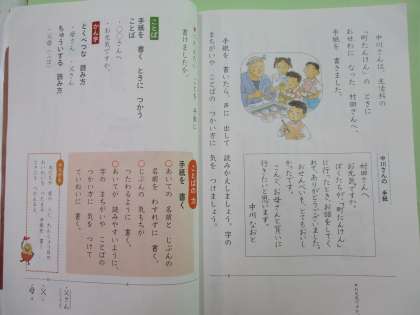 中川さんは、生活科の
「町たんけん」の ときに
おせわに なった 村田さんへ、
手紙を 書きました。
中川さんの 手紙
村田さんへ
お元気ですか。
ぼくたちが「町たんけん」
に行ったとき、お話をしてく
れてありがとうございました。
おせんべいも、とてもおいし
かったです。
こんど、お母さんと買いに
行きたいと思います。
中川 なおと
手紙を 書いたら、声に 出して 読みかえしましょう。字の
まちがいや ことばの つかい方に 気を つけましょう。
書けましたか。
ことば
手紙を 書く ときに つかう
ことば
・○○さんへ
・お元気ですか。
かん字
とくべつな 読み方
・母さん
ちゅういする 読み方
ことばの 力
手紙を 書く
○あいての 名前と じぶんの
名前を わすれずに 書く。
○じぶんの 気もちが
つたわるように 書く。
○あいてが 読みやすいように、
字の まちがいや ことばの
つかい方に 気を つけて
ていねいに 書く。